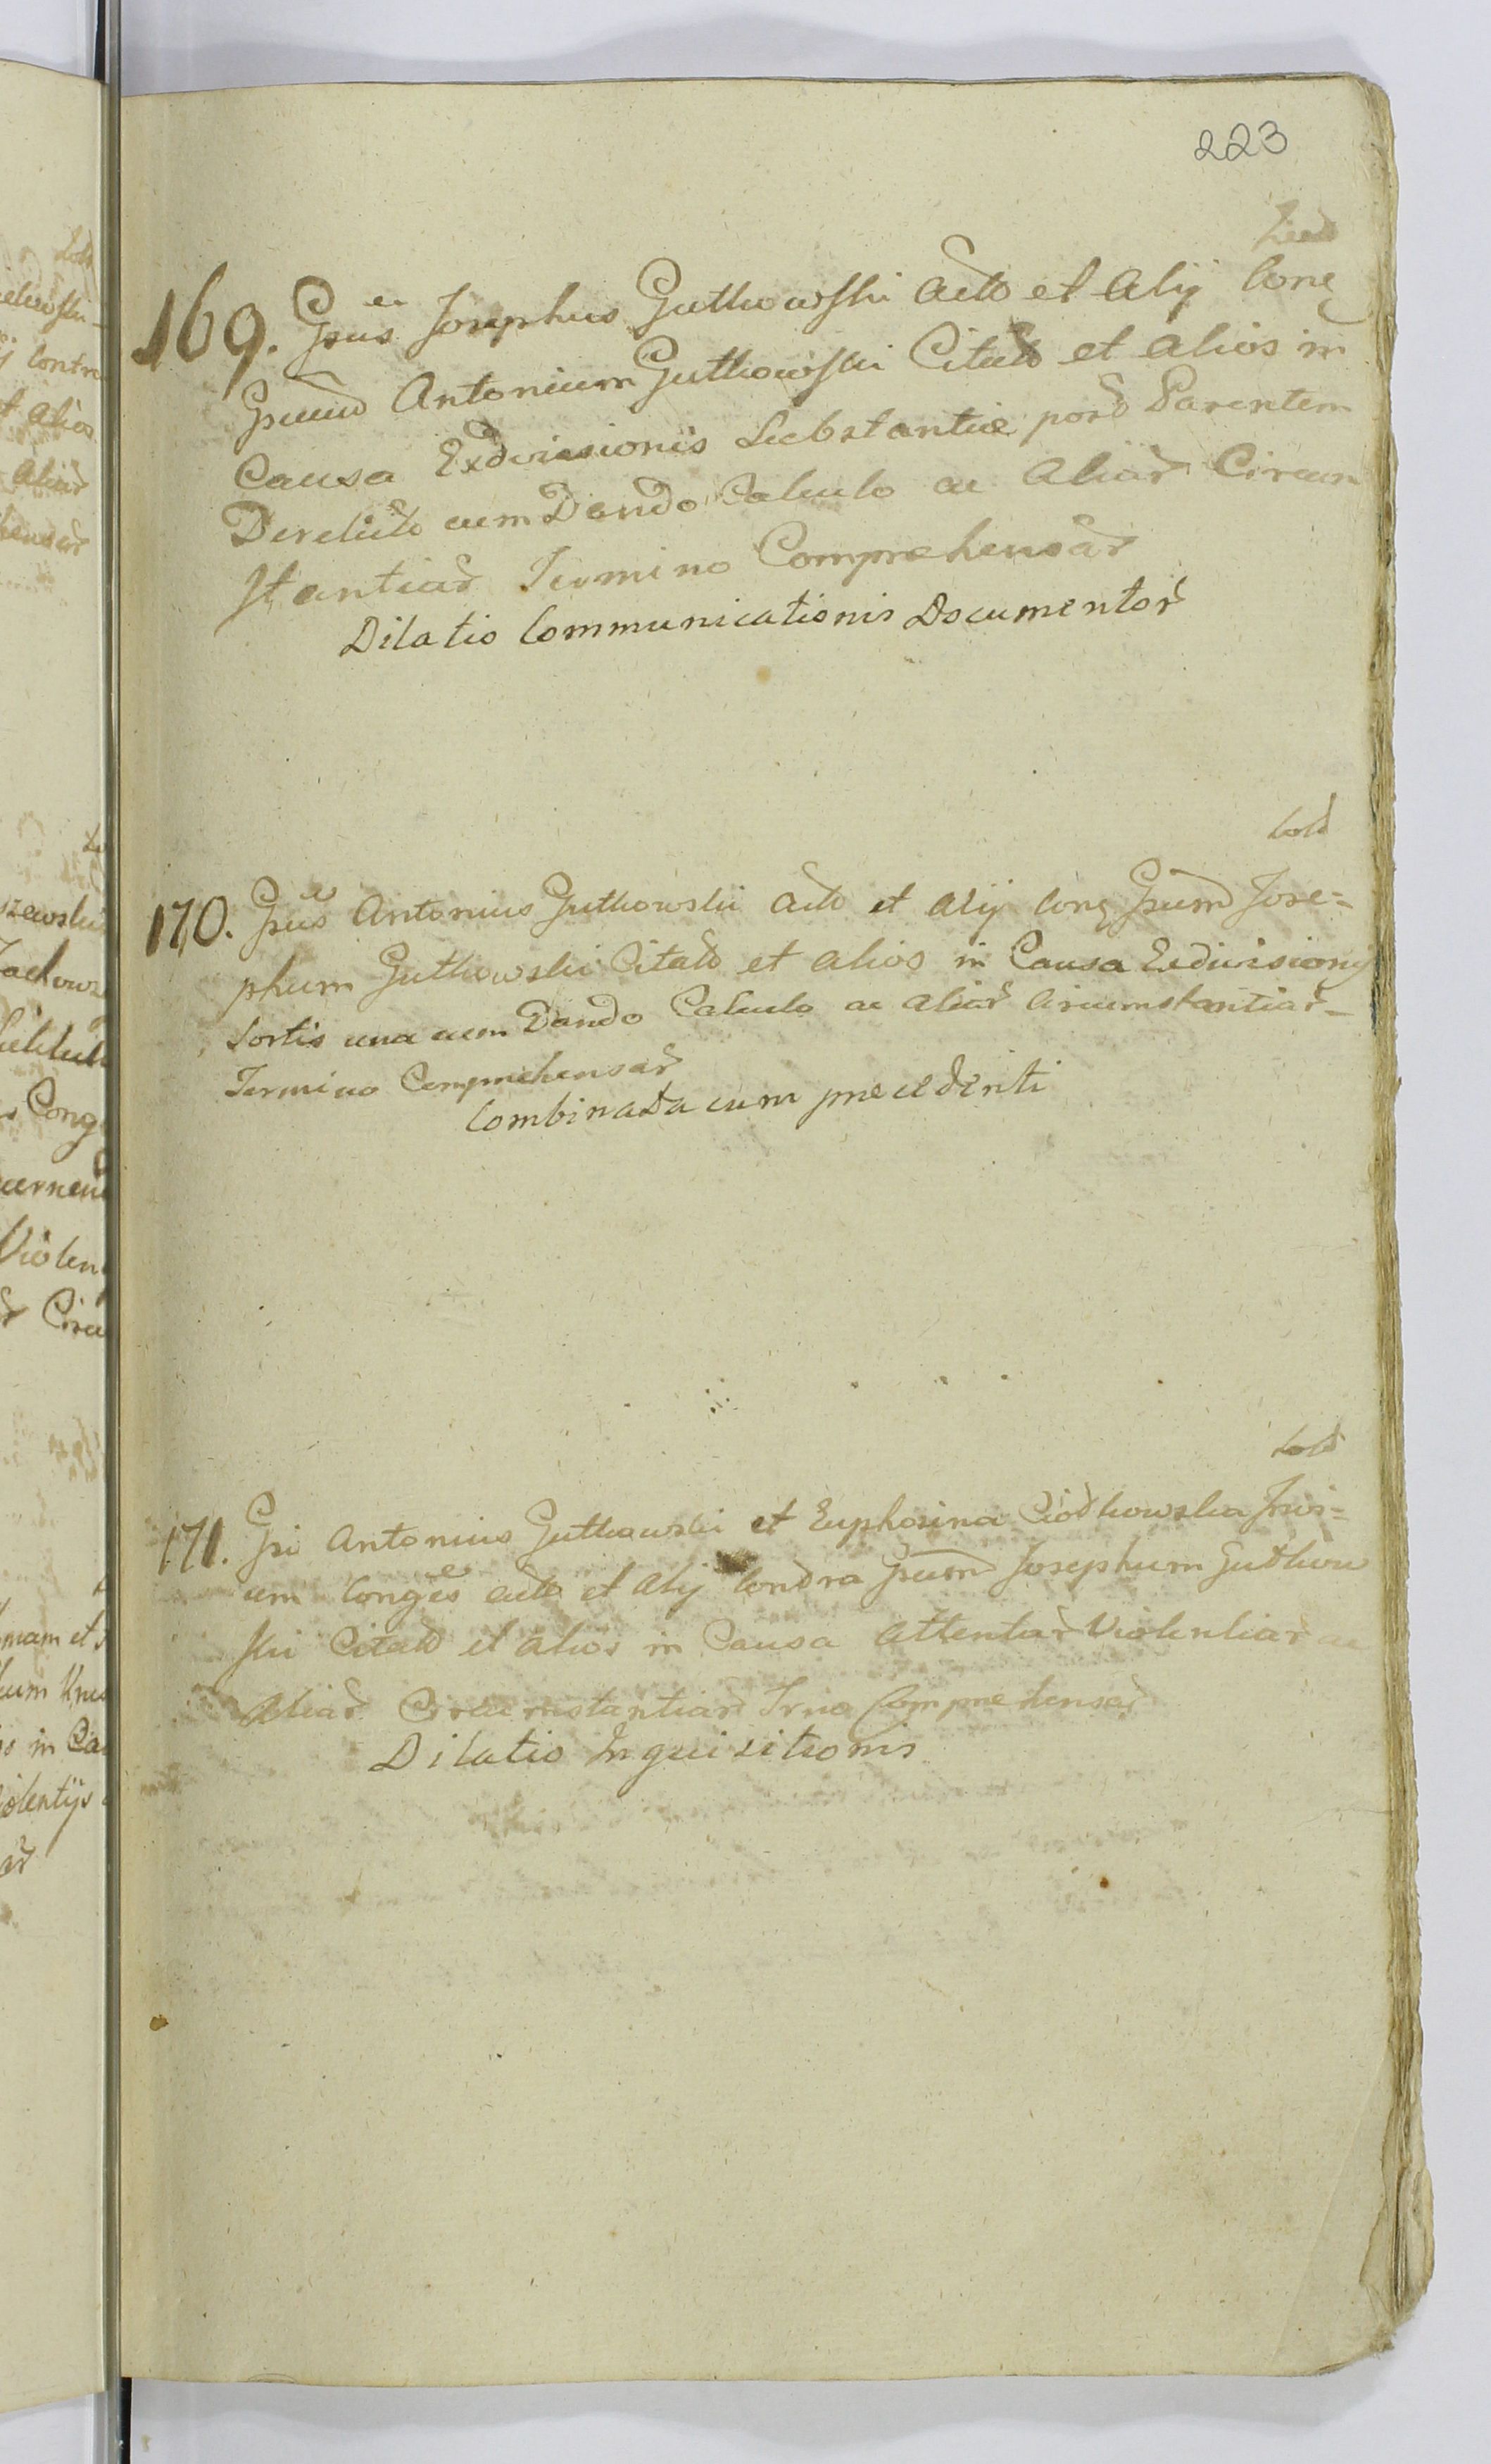 223
169. Gsus Josephus Gutkowski Acto et Alij Conq
Gsum Antonium Gutkowski Citato et alios in
Causa Exdivisionis Substantiæ post Parentem
Derelicto cum Dando Calculo ac Aliar Circum
stantiar Termino Comprehensar
Dilatio Communicationis Documentor
170. Gsus Antonius Gutkowski Acto et Alij Conq Gsum Jose=
phum Gutkowski Citato et alios in Causa Exdivisionis
Sortis una cum Dando Calculo ac aliar Circumstantiar
Termino Comprehensar
Combinata cum precedenti
171. Gsi Antonius Gutkowski et Euphosina Ciodkowska
um Conges Acto et Alij Contra Gsum Josephum Gutkow
ski Citato et alios in Causa Attentar Violentiar ac
Aliar Circumstantiar Trno Comprehensar
Dilatio Inquisitionis